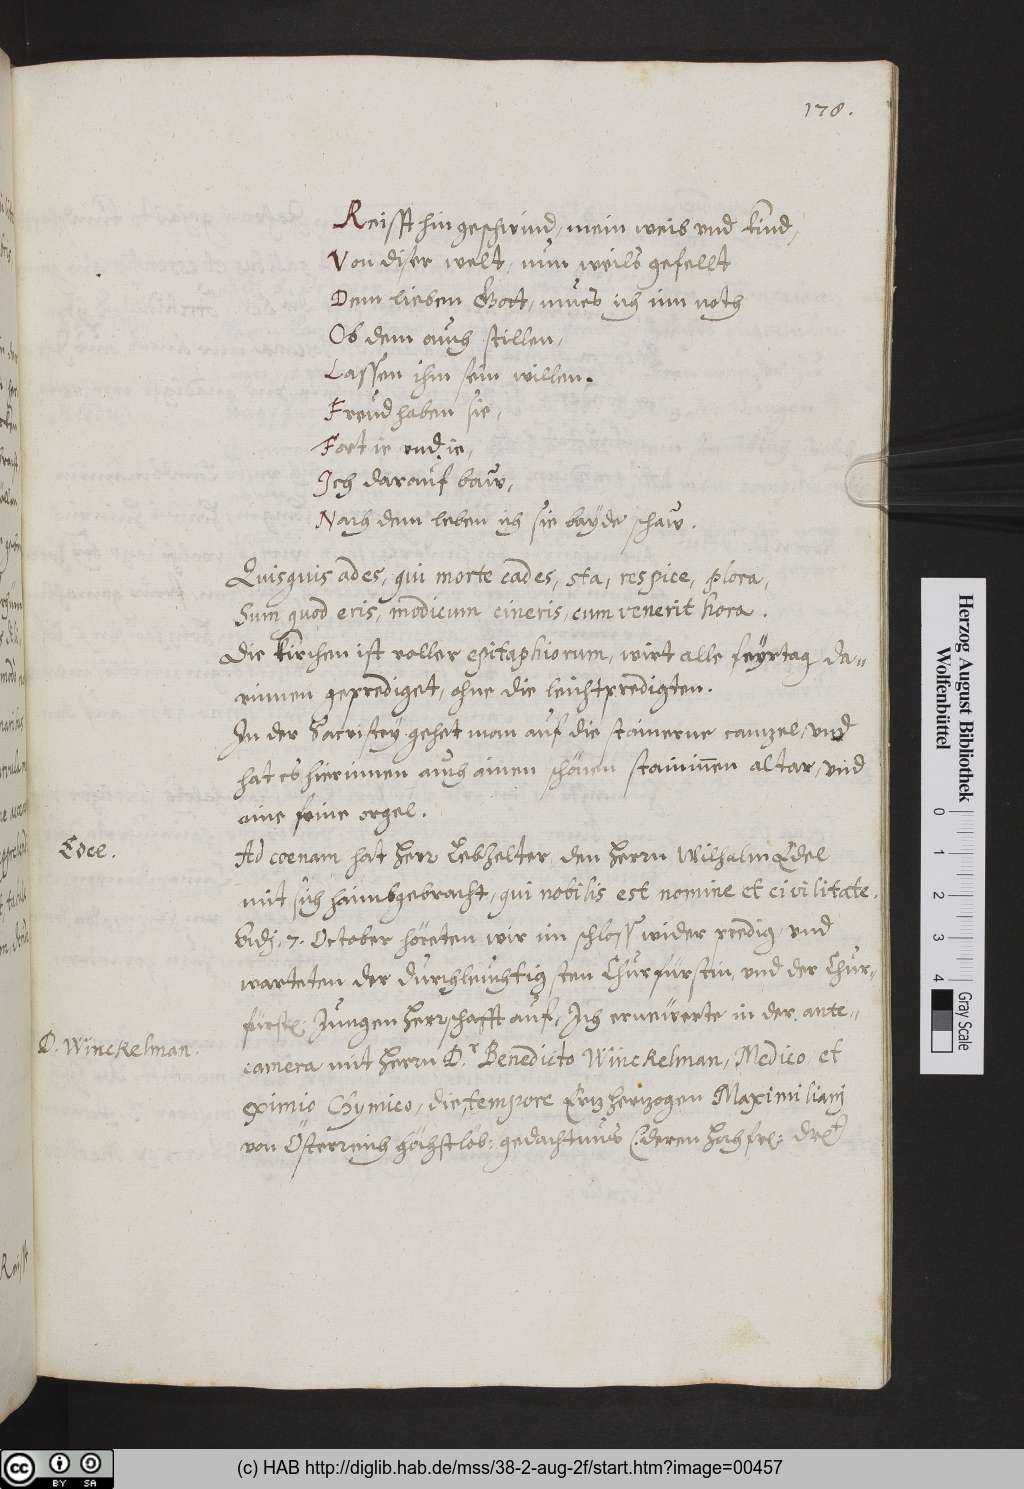 178.
Reisst hin geschwind, mein weib und kind,
Von diser welt, nun weils gefellt
Dem lieben Gott, mues ich im noth
Ob dem auch stillen,
Lassen ihm sein willen.
Freud haben sie,
Fort ie und ie,
Ich darauf baw,
Nach dem leben ich sie bayde schaw.
Quisquis ades, qui morte cades, sta, respice, plora,
Sum quod eris, modicum cineris, cum venerit hora.
Die kirchen ist voller epitaphiorum, wirt alle feyrtag da-
rinnen geprediget, ohne die leichtpredigten.
In der Sacristey gehet man auf die stainerne canzel, und
hat es hierinnen auch ainen schönen staininen altar, und
aine feine orgel.
Edel.
Ad coenam hat Herr Lebzelter den Herrn Wilhalm Edel
mit sich haimbgebracht, qui nobilis est nomine et civilitate.
7. October höreten wir im schloss wider predig, und
warteten der durchleuchtigsten Churfürstin, und der Chur-
fürstl: Jungen Herrschafft auf, Ich erneuwerte in der ante-
D. Winckelman.
camera mit Herrn D.r Benedicto Winckelman, Medico, et
eximio Chymico, die tempore Erzherzogen Maximiliani
von Österreich höchstlöb: gedachtnus (deren Hochfrl: Drlt)
Reisst
Herzog August Bibliothek
Wolfenbüttel
0 1 2 3 4
Gray Scale
cc BY SA
(c) HAB http://diglib.hab.de/mss/38-2-aug-2f/start.htm?image=00457